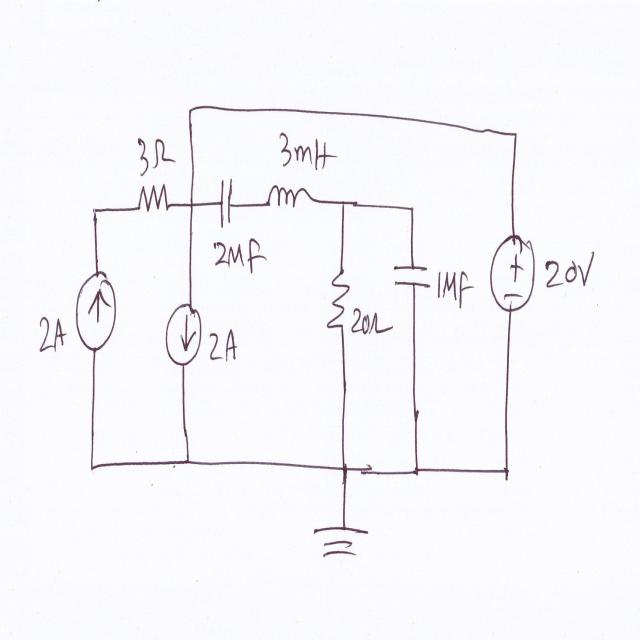 3Ω
3mH
2MF
2A
2A
20Ω
1MF
+
−
20V